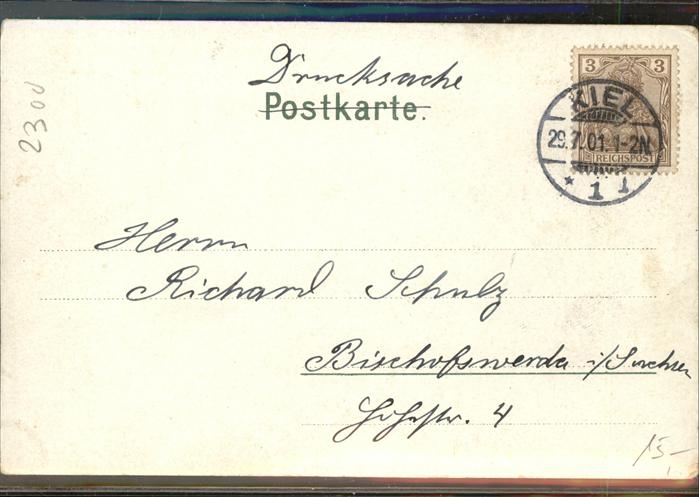 Drucksache
Postkarte.
3 3
REICHSPOST
KIEL
29.7.01.1-2N.
* 1 1
2300
Herrn
Richard Schulz
Bischofswerda i/Sachsen
Hohestr. 4
15.-